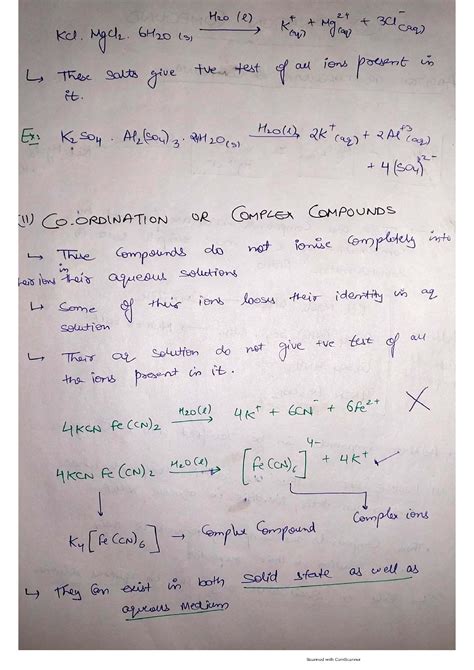 KCl. MgCl2. 6H2O(s) H2O(l) → K+(aq) + Mg2+(aq) + 3Cl-(aq)
↳ These salts give +ve test of all ions present in
it.
Ex: K2SO4. Al2(SO4)3. H2O(s) H2O(l) → 2K+(aq) + 2Al+3(aq)
+ 4(SO4)2-
(II) CO-ORDINATION OR COMPLEX COMPOUNDS
↳ These Compounds do not ionise completely into
their ions in their aqueous solutions
↳ Some of their ions looses their identity in aq
solution
↳ Their aq solution do not give +ve test of all
the ions present in it.
4KCN Fe(CN)2 H2O(l) → 4K+ + 6CN- + 6Fe2+ X
4KCN Fe(CN)2 H2O(l) → [Fe(CN)6]4- + 4K+ ✓
Complex ions
K4[Fe(CN)6] → Complex Compound
↳ They Can exist in both solid state as well as
aqueous Medium
Scanned with CamScanner